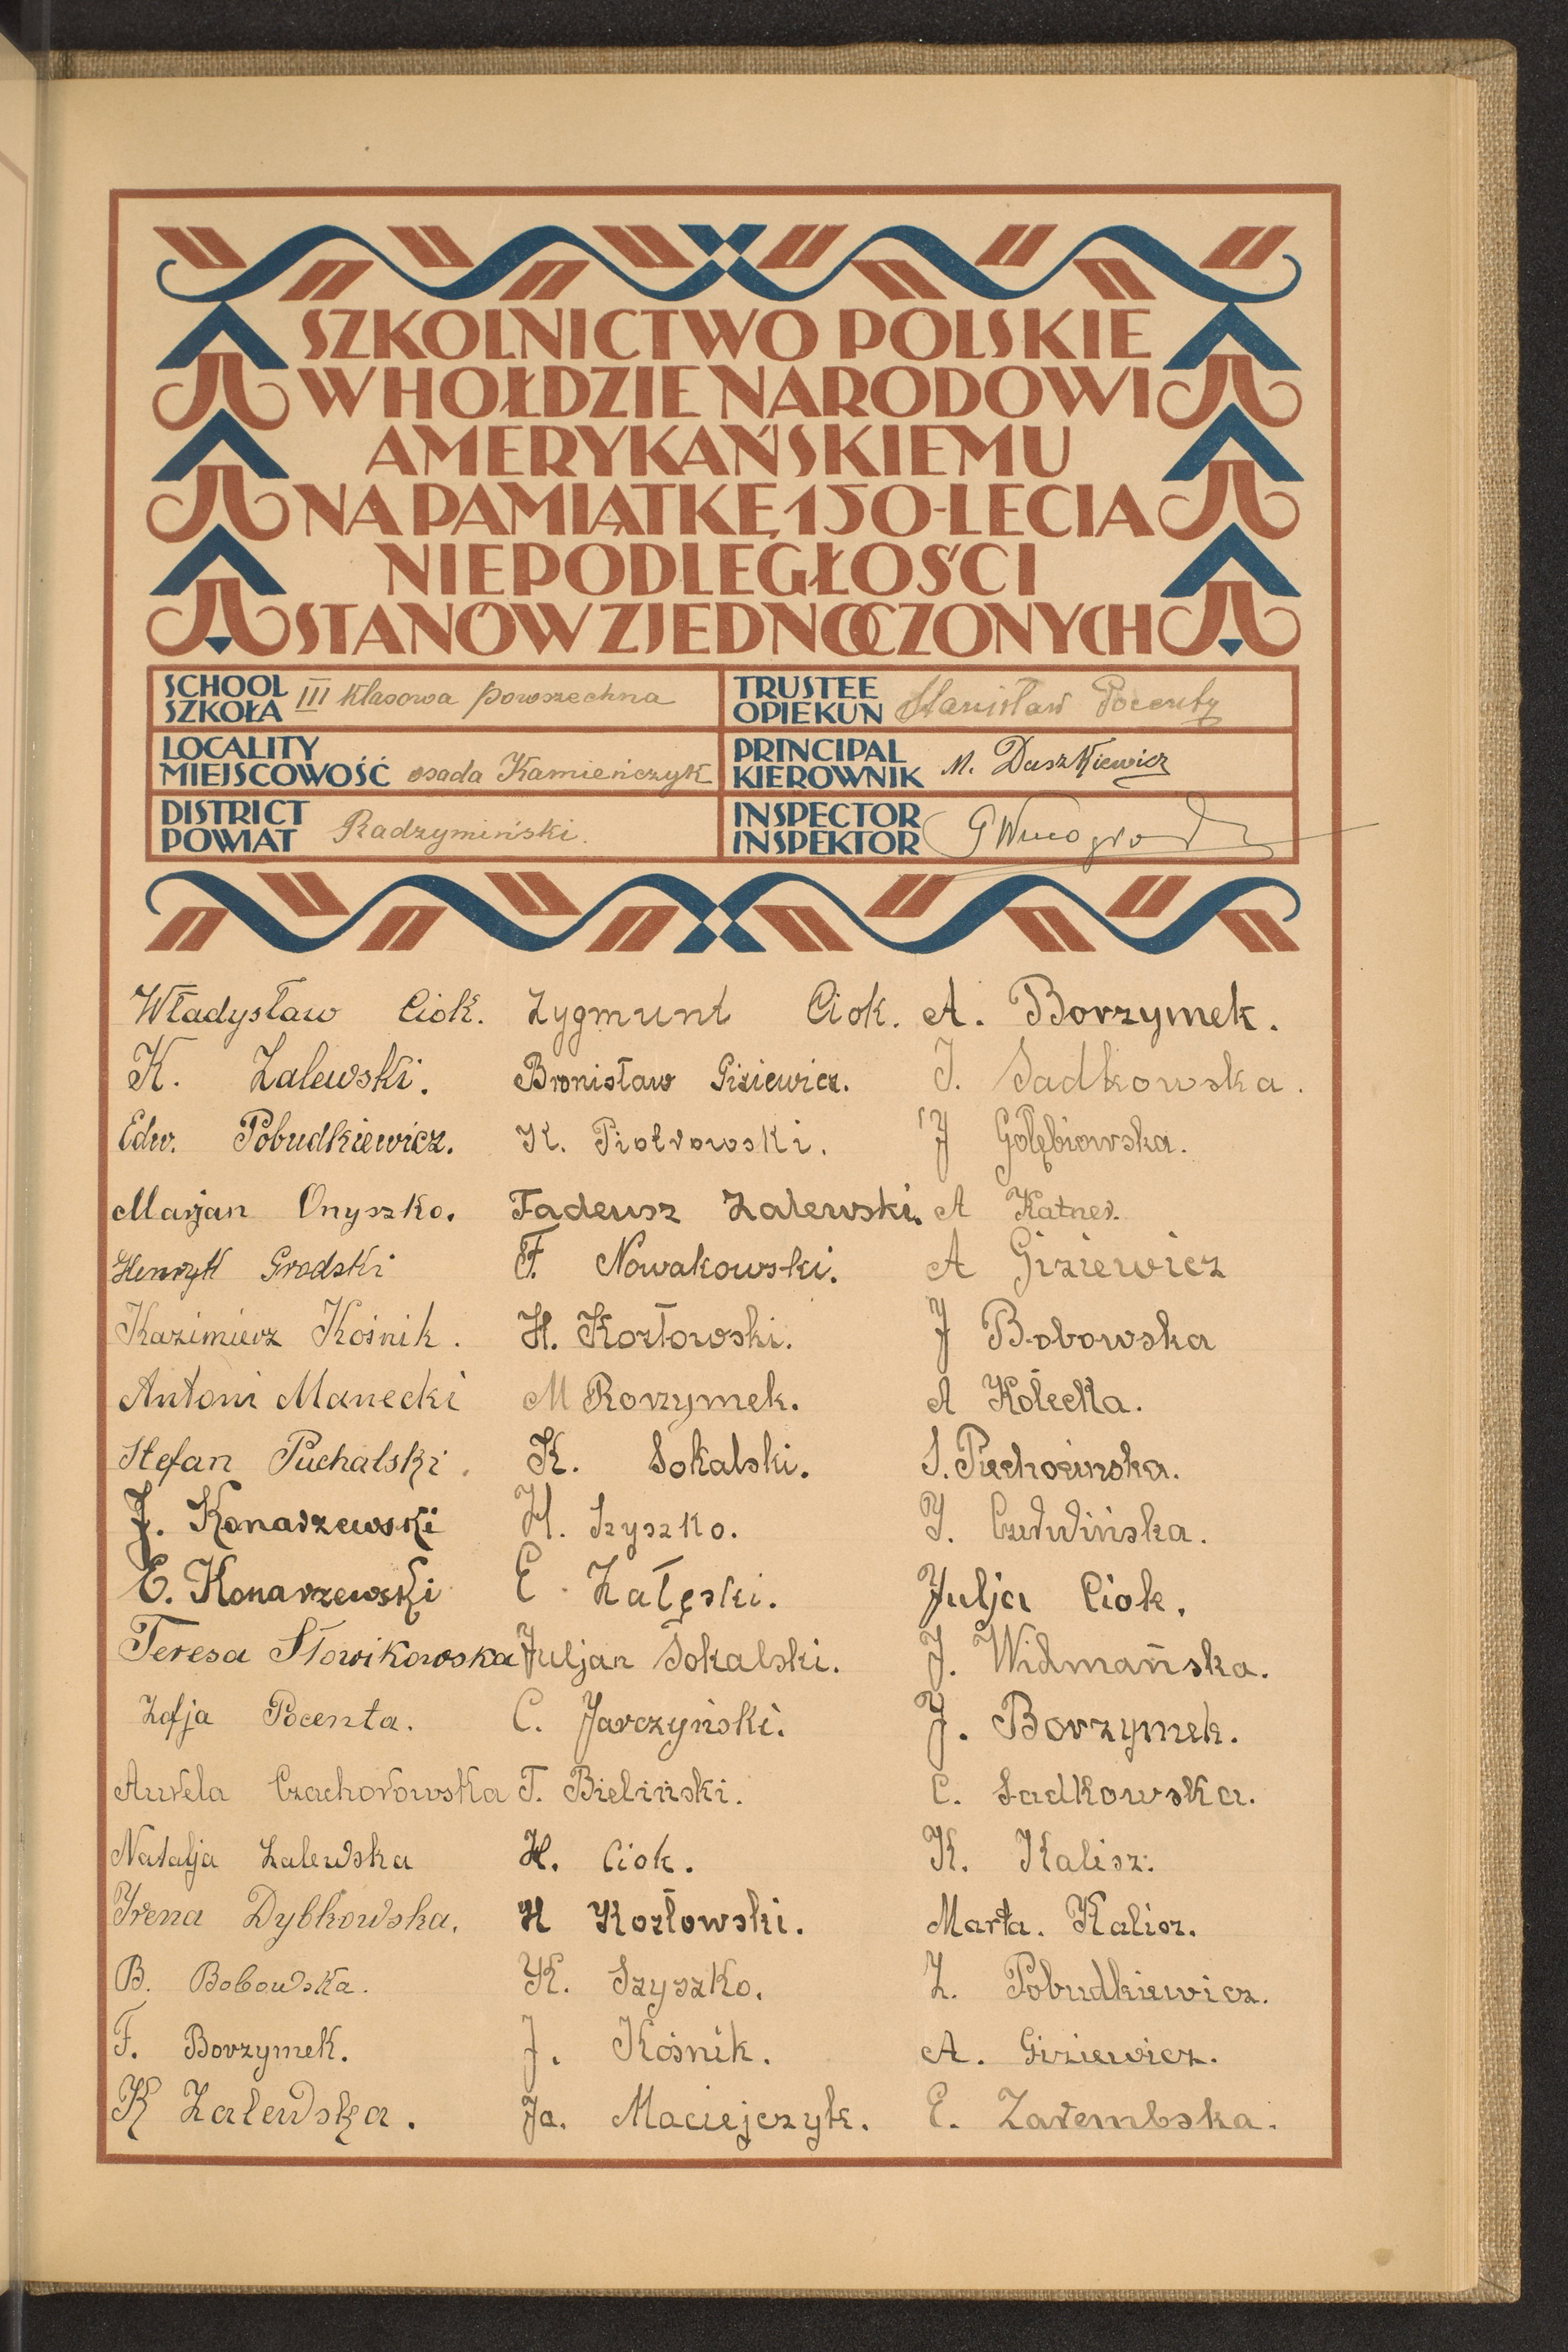 SZKOLNICTWO POLSKIE
W HOŁDZIE NARODOWI
AMERYKAŃSKIEMU
NA PAMIĄTKĘ 150-LECIA
NIEPODLEGŁOŚCI
STANÓW ZJEDNOCZONYCH
SCHOOL
SZKOŁA III klasowa powszechna
TRUSTEE
OPIEKUN Stanisław Pocenty
LOCALITY
MIEJSCOWOŚĆ osada Kamieńczyk
PRINCIPAL
KIEROWNIK M. Daszkiewicz
DISTRICT
POWIAT Radzymiński.
INSPECTOR
INSPEKTOR
Władysław Ciok.
K. Zalewski.
Edw. Pobudkiewicz.
Marjan Onyszko.
Henryk Grodski
Kazimierz Kośnik.
Antoni Manecki
Stefan Puchalski.
J. Konarzewski
E. Konarzewski
Teresa Słowikowska
Zofja Pocenta.
Aurela Czachorowska
Natalja Zalewska
Irena Dybkowska.
B. Bobowska.
F. Borzymek.
K Zalewska.
Zygmunt Ciok.
Bronisław Giziewicz.
K. Piotrowski.
Tadeusz Zalewski.
F. Nowakowski.
H. Kozłowski.
M Borzymek.
K. Sokalski.
H. Szyszko.
E. Załęski.
Juljan Sokalski.
C. Jarczyński.
T. Bieliński.
H. Ciok.
H Kozłowski.
K. Szyszko.
J. Kośnik.
Ja. Maciejczyk.
A. Borzymek.
J. Sadkowska.
J Gołębiowska.
A Katner.
A Giziewicz
J Bobowska
A Kołecka.
S.
J. Czerwińska.
Julja Ciok.
J. Widmańska.
J. Borzymek.
C. Sadkowska.
K. Kalisz.
Marta. Kalisz.
Z. Pobudkiewicz.
A. Giziewicz.
E. Zarembska.